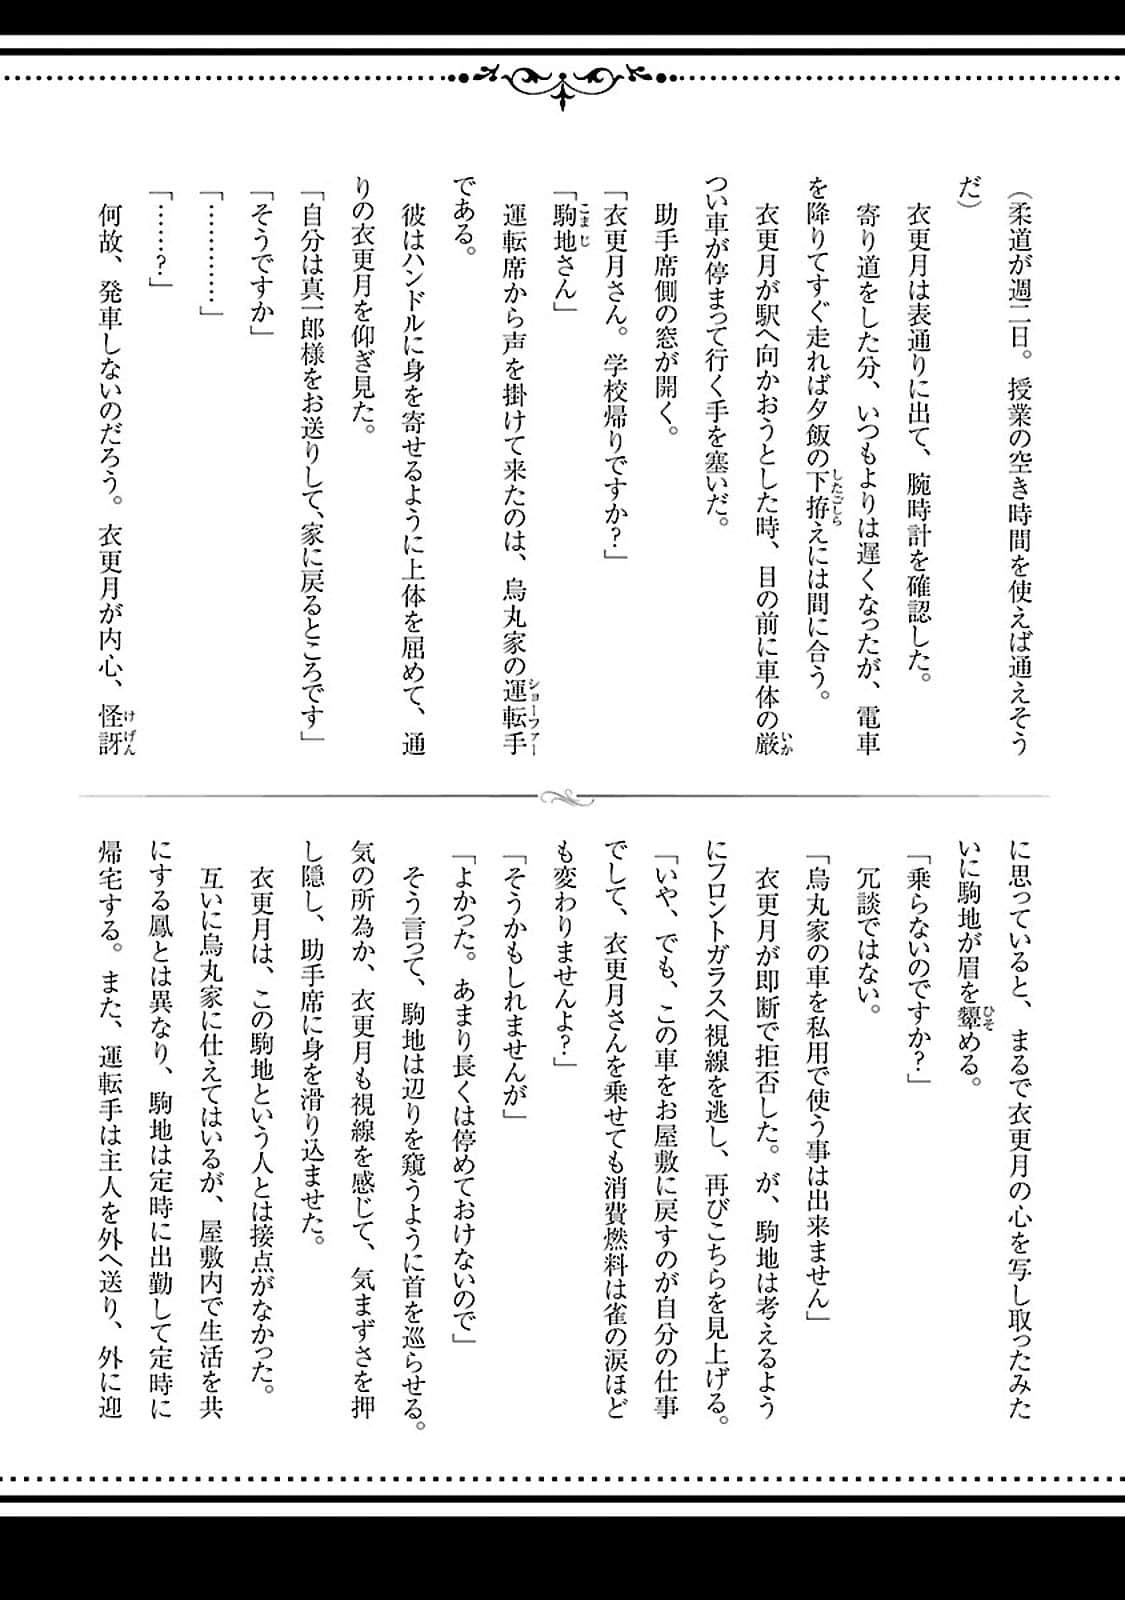 （柔道が週二日。授業の空き時間を使えば通えそう
だ）
　衣更月は表通りに出て、腕時計を確認した。
　寄り道をした分、いつもよりは遅くなったが、電車
を降りてすぐ走れば夕飯の下拵えには間に合う。
したごしら
　衣更月が駅へ向かおうとした時、目の前に車体の厳
いか
つい車が停まって行く手を塞いだ。
　助手席側の窓が開く。
「衣更月さん。学校帰りですか？」
「駒地さん」
こまじ
　運転席から声を掛けて来たのは、烏丸家の運転手
ショーファー
である。
　彼はハンドルに身を寄せるように上体を屈めて、通
りの衣更月を仰ぎ見た。
「自分は真一郎様をお送りして、家に戻るところです」
「そうですか」
「…………」
「……？」
　何故、発車しないのだろう。衣更月が内心、怪訝
けげん
に思っていると、まるで衣更月の心を写し取ったみた
いに駒地が眉を顰める。
ひそ
「乗らないのですか？」
　冗談ではない。
「烏丸家の車を私用で使う事は出来ません」
　衣更月が即断で拒否した。が、駒地は考えるよう
にフロントガラスへ視線を逃し、再びこちらを見上げる。
「いや、でも、この車をお屋敷に戻すのが自分の仕事
でして、衣更月さんを乗せても消費燃料は雀の涙ほど
も変わりませんよ？」
「そうかもしれませんが」
「よかった。あまり長くは停めておけないので」
　そう言って、駒地は辺りを窺うように首を巡らせる。
気の所為か、衣更月も視線を感じて、気まずさを押
し隠し、助手席に身を滑り込ませた。
　衣更月は、この駒地という人とは接点がなかった。
　互いに烏丸家に仕えてはいるが、屋敷内で生活を共
にする鳳とは異なり、駒地は定時に出勤して定時に
帰宅する。また、運転手は主人を外へ送り、外に迎